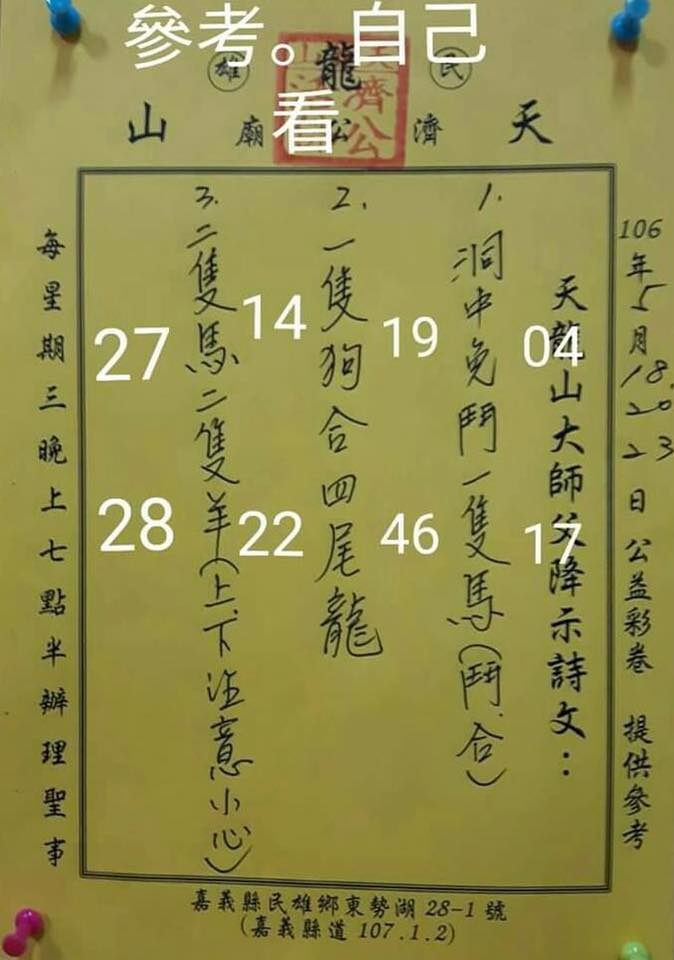 參考。自己
看
民 龍 雄
天 濟 公 廟 山
106年5月18.20 23日公益彩卷 提供參考
天龍山大師父降示詩文：
1. 洞中免鬥一隻馬(鬥.合)
2. 一隻狗合四尾龍
3. 二隻馬二隻羊(上.下注意小心)
每星期三晚上七點半辦理聖事
27 14 19 04
28 22 46 17
嘉義縣民雄鄉東勢湖28-1號
(嘉義縣道107.1.2)